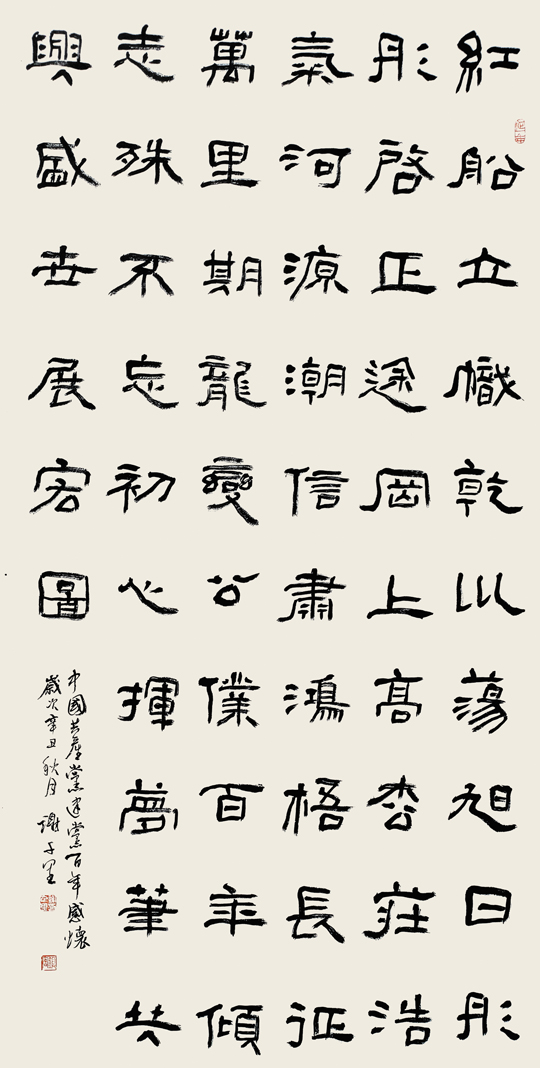 紅船立幟乾坤蕩旭日彤
彤啓正途岡上高松莊浩
氣河源潮信肅鴻梧長征
萬里期龍變公僕百年傾
志殊不忘初心揮夢筆共
興盛世展宏圖
中國共產黨建黨百年感懷
歲次辛丑秋月 謝子